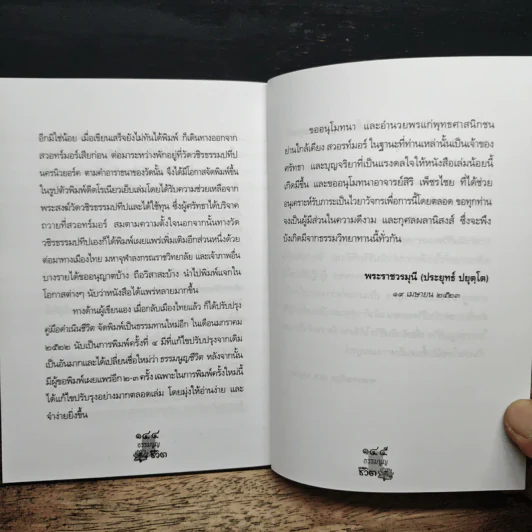 อีกมิใช่น้อย เมื่อเขียนเสร็จยังไม่ทันได้พิมพ์ ก็เดินทางออกจาก
สวอทร์มอร์เสียก่อน ต่อมาระหว่างพักอยู่ที่วัดวชิรธรรมปทีป
นครนิวยอร์ค ตามคำอาราธนาของวัดนั้น จึงได้มีโอกาสจัดพิมพ์ขึ้น
ในรูปตัวพิมพ์ดีดโรเนียวเย็บเล่มโดยได้รับความช่วยเหลือจาก
พระสงฆ์วัดวชิรธรรมปทีปและได้ใช้ทุน ซึ่งผู้ศรัทธาได้บริจาค
ถวายที่สวอทร์มอร์ สมตามความตั้งใจนอกจากนั้นทางวัด
วชิรธรรมปทีปเองก็ได้พิมพ์เผยแพร่เพิ่มเติมอีกส่วนหนึ่งด้วย
ต่อมาทางเมืองไทย มหาจุฬาลงกรณราชวิทยาลัย และเจ้าภาพอื่น
บางรายได้ขออนุญาตบ้าง ถือวิสาสะบ้าง นำไปพิมพ์แจกใน
โอกาสต่างๆ นับว่าหนังสือได้แพร่หลายมากขึ้น
ทางด้านผู้เขียนเอง เมื่อกลับเมืองไทยแล้ว ก็ได้ปรับปรุง
คู่มือดำเนินชีวิต จัดพิมพ์เป็นธรรมทานใหม่อีก ในเดือนมกราคม
๒๕๒๒ นับเป็นการพิมพ์ครั้งที่ ๔ มีที่แก้ไขปรับปรุงจากเดิม
เป็นอันมากและได้เปลี่ยนชื่อใหม่ว่า ธรรมนูญชีวิต หลังจากนั้น
มีผู้ขอพิมพ์เผยแพร่อีก ๒-๓ ครั้ง เฉพาะในการพิมพ์ครั้งใหม่นี้
ได้แก้ไขปรับปรุงอย่างมากตลอดเล่ม โดยมุ่งให้อ่านง่าย และ
จำง่ายยิ่งขึ้น
๑๔๔
ธรรมนูญ
ชีวิต
ขออนุโมทนา และอำนวยพรแก่พุทธศาสนิกชน
ย่านใกล้เคียง สวอรทัมอร์ ในฐานะที่ท่านเหล่านั้นเป็นเจ้าของ
ศรัทธา และบุญจริยาที่เป็นแรงดลใจให้หนังสือเล่มน้อยนี้
เกิดมีขึ้น และขออนุโมทนาอาจารย์สิริ เพ็ชรไชย ที่ได้ช่วย
อนุเคราะห์รับภาระเป็นไวยาวัจกรเพื่อการนี้โดยตลอด ขอทุกท่าน
จงเป็นผู้มีส่วนในความดีงาม และกุศลผลานิสงส์ ซึ่งจะพึง
บังเกิดมีจากธรรมวิทยาทานนี้ทั่วกัน
พระราชวรมุนี (ประยุทธ์ ปยุตฺโต)
๑๙ เมษายน ๒๕๒๓
๑๔๕
ธรรมนูญ
ชีวิต